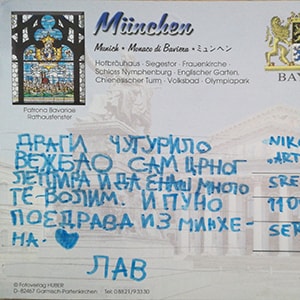 München
Munich ★ Monaco di Baviera ★ ミュンヘン
Hofbräuhaus · Siegestor · Frauenkirche ·
Schloss Nymphenburg · Englischer Garten,
Chinesischer Turm · Volksbad · Olympiapark
BA
Patrona Bavariae
Rathausfenster
ДРАГИ ЧУГУРИЛО
ВЕЖБАО САМ ЦРНОГ
ЛЕПИРА И ДА ЗНАШ МНОГО
ТЕ ВОЛИМ. И ПУНО
ПОЗДРАВА ИЗ МИНХЕ-
НА.
ЛАВ
NIKO
"ART
SRE
110
SER
© Fotoverlag HUBER
D-82467 Garmisch-Partenkirchen